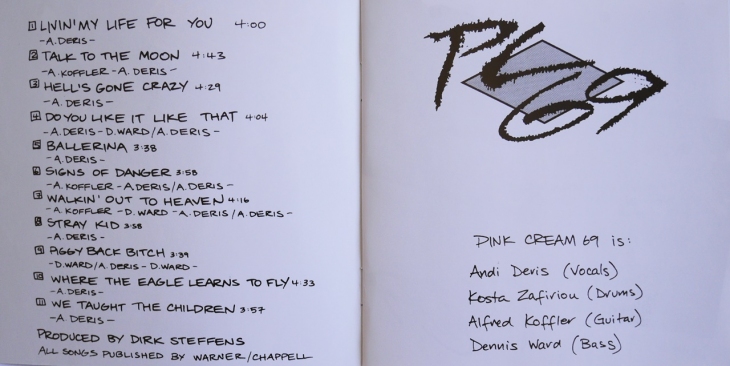 1 LIVIN' MY LIFE FOR YOU 4:00
-A.DERIS-
2 TALK TO THE MOON 4:43
-A.KOFFLER-A.DERIS-
3 HELL'S GONE CRAZY 4:29
-A.DERIS-
4 DO YOU LIKE IT LIKE THAT 4:04
-A.DERIS-D.WARD/A.DERIS-
5 BALLERINA 3:38
-A.DERIS-
6 SIGNS OF DANGER 3:58
-A.KOFFLER-A.DERIS/A.DERIS-
7 WALKIN' OUT TO HEAVEN 4:16
-A.KOFFLER-D.WARD-A.DERIS/A.DERIS-
8 STRAY KID 3:58
-A.DERIS-
9 PIGGY BACK BITCH 3:39
-D.WARD/A.DERIS-D.WARD-
10 WHERE THE EAGLE LEARNS TO FLY 4:33
-A.DERIS-
11 WE TAUGHT THE CHILDREN 3:57
-A.DERIS-
PRODUCED BY DIRK STEFFENS
ALL SONGS PUBLISHED BY WARNER/CHAPPELL
PC69
PINK CREAM 69 is:
Andi Deris (Vocals)
Kosta Zafiriou (Drums)
Alfred Koffler (Guitar)
Dennis Ward (Bass)